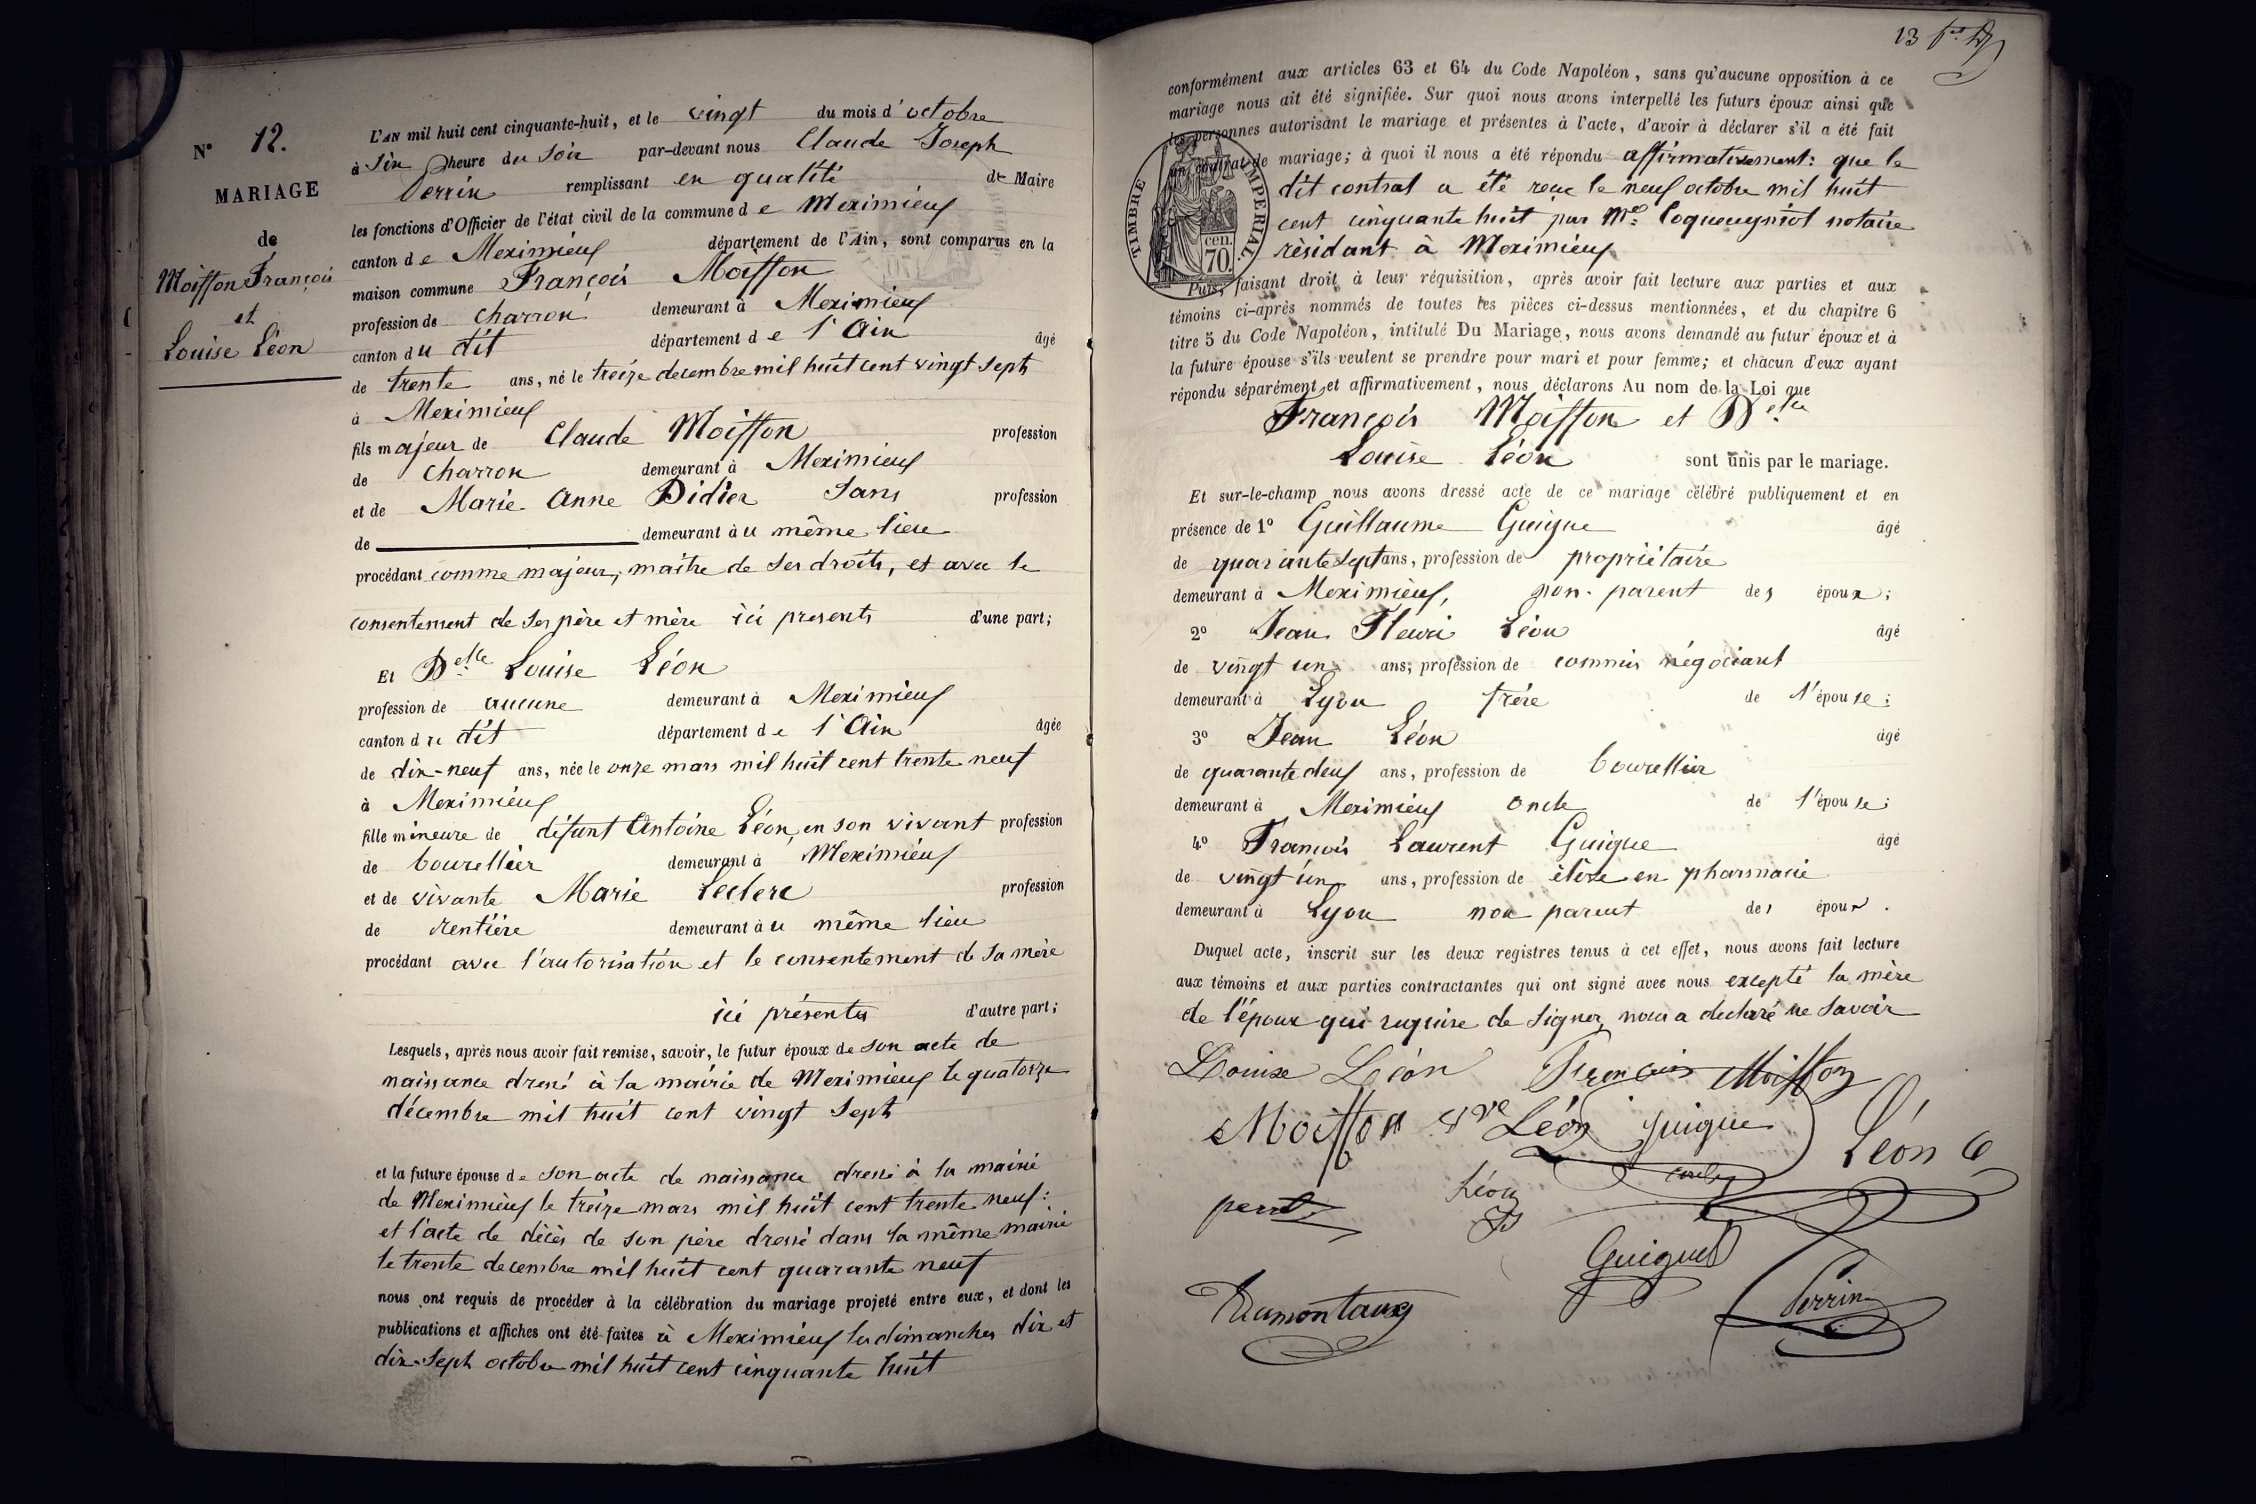 N° 12.
MARIAGE
de
Moisson François
et
Louise Léon
L'AN mil huit cent cinquante-huit, et le vingt du mois d'octobre
à Six heure du Soir par-devant nous Claude Joseph
Perrin remplissant en qualité de Maire
les fonctions d'Officier de l'état civil de la commune de Meximieux
canton de Meximieux département de l'Ain, sont comparus en la
maison commune François Moisson
profession de charron demeurant à Meximieux
canton du dit département de l'Ain âgé
de trente ans, né le treize decembre mil huit cent vingt sept
à Meximieux
fils majeur de Claude Moisson profession
de charron demeurant à Meximieux
et de Marie Anne Didier Sans profession
de demeurant au même lieu
procédant comme majeur, maître de ses droits, et avec le
consentement de ses père et mère ici presents d'une part;
Et Delle Louise Léon
profession de aucune demeurant à Meximieux
canton du dit département de l'Ain âgée
de dix-neuf ans, née le onze mars mil huit cent trente neuf
à Meximieux
fille mineure de défunt Antoine Léon, en son vivant profession
de bourellier demeurant à Meximieux
et de vivante Marie Leclerc profession
de rentière demeurant au même lieu
procédant avec l'autorisation et le consentement de sa mère
ici présente d'autre part;
Lesquels, après nous avoir fait remise, savoir, le futur époux de son acte de
naissance dressé à la mairie de Meximieux le quatorze
décembre mil huit cent vingt sept
et la future épouse de son acte de naissance dressé à la mairie
de Meximieux le treize mars mil huit cent trente neuf:
et l'acte de décès de son père dressé dans la même mairie
le trente decembre mil huit cent quarante neuf
nous ont requis de procéder à la célébration du mariage projeté entre eux, et dont les
publications et affiches ont été faites à Meximieux les dimanches dix et
dix-sept octobre mil huit cent cinquante huit
13
conformément aux articles 63 et 64 du Code Napoléon, sans qu'aucune opposition à ce
mariage nous ait été signifiée. Sur quoi nous avons interpellé les futurs époux ainsi que
les personnes autorisant le mariage et présentes à l'acte, d'avoir à déclarer s'il a été fait
un contrat de mariage; à quoi il nous a été répondu affirmativement: que le
dit contrat a été reçu le neuf octobre mil huit
cent cinquante huit par Me Coqueugniot notaire
résidant à Meximieux
TIMBRE IMPERIAL.
cen.
70.
Puis, faisant droit à leur réquisition, après avoir fait lecture aux parties et aux
témoins ci-après nommés de toutes les pièces ci-dessus mentionnées, et du chapitre 6
titre 5 du Code Napoléon, intitulé Du Mariage, nous avons demandé au futur époux et à
la future épouse s'ils veulent se prendre pour mari et pour femme; et chacun d'eux ayant
répondu séparément et affirmativement, nous déclarons Au nom de la Loi que
François Moisson et Delle
Louise Léon sont unis par le mariage.
Et sur-le-champ nous avons dressé acte de ce mariage célébré publiquement et en
présence de 1° Guillaume Guigue âgé
de quarante sept ans, profession de propriétaire
demeurant à Meximieux, non-parent des époux;
2° Jean Fleuri Léon âgé
de vingt un ans, profession de commis négociant
demeurant à Lyon frère de l'épouse;
3° Jean Léon âgé
de quarante deux ans, profession de bourellier
demeurant à Meximieux oncle de l'épouse;
4° François Laurent Guigue âgé
de vingt un ans, profession de élève en pharmacie
demeurant à Lyon non parent des époux.
Duquel acte, inscrit sur les deux registres tenus à cet effet, nous avons fait lecture
aux témoins et aux parties contractantes qui ont signé avec nous excepté la mère
de l'époux qui requise de signer, nous a declaré ne savoir
Louise Léon François Moisson
Moisson Vve Léon guigue Léon
Léon
Guigue
Dumontaux Perrin